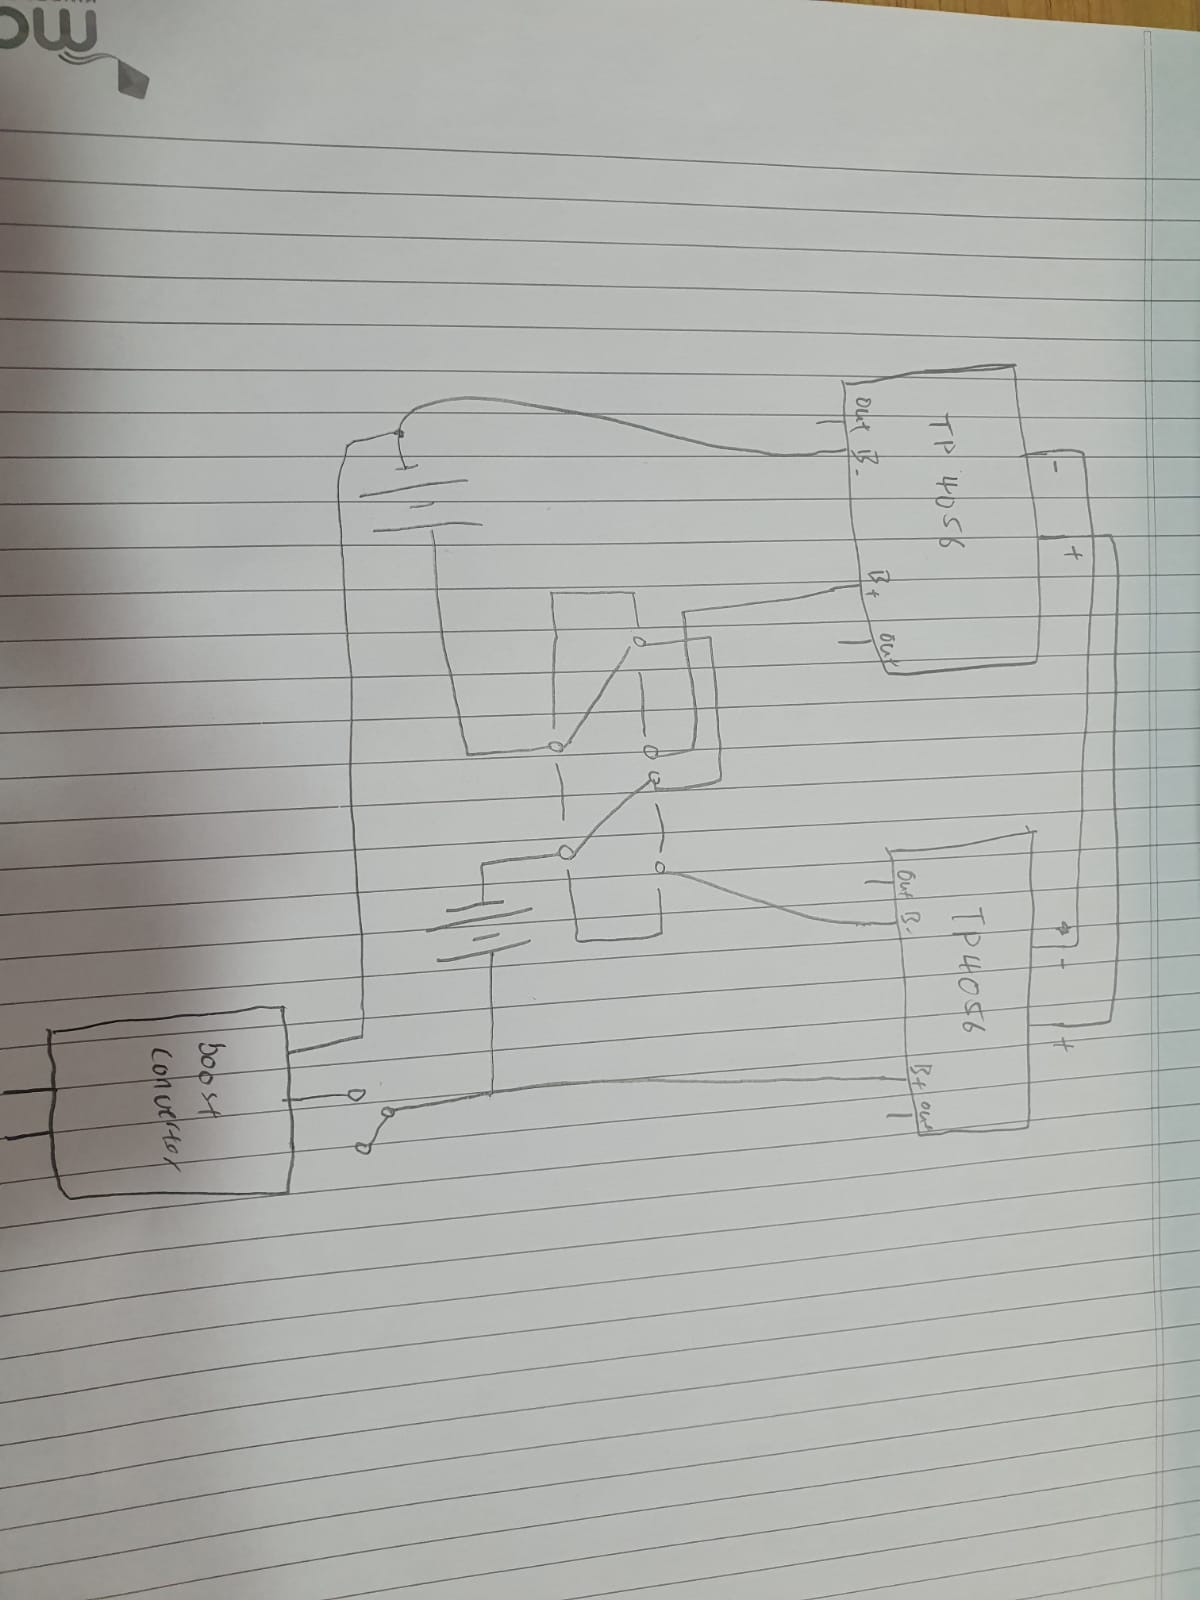 - +
TP 4056
Out B- B+ out
- +
TP4056
Out B- B+ out
boost
converter